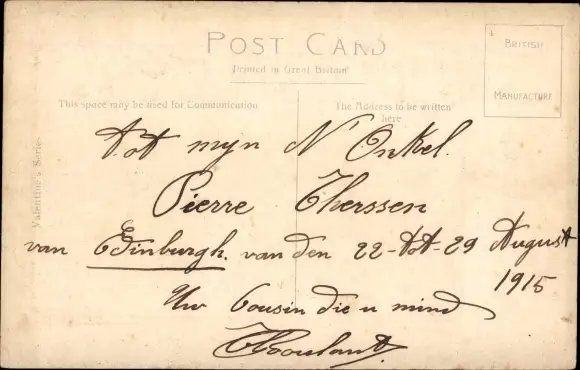 POST CARD
Printed in Great Britain
BRITISH
MANUFACTURE
This space may be used for Communication
The Address to be written
here
Valentine's Series
tot myn N Onkel.
Pierre Therssen
van Edinburgh. van den 22-tot-29 August
1915
Uw Cousin die u mind